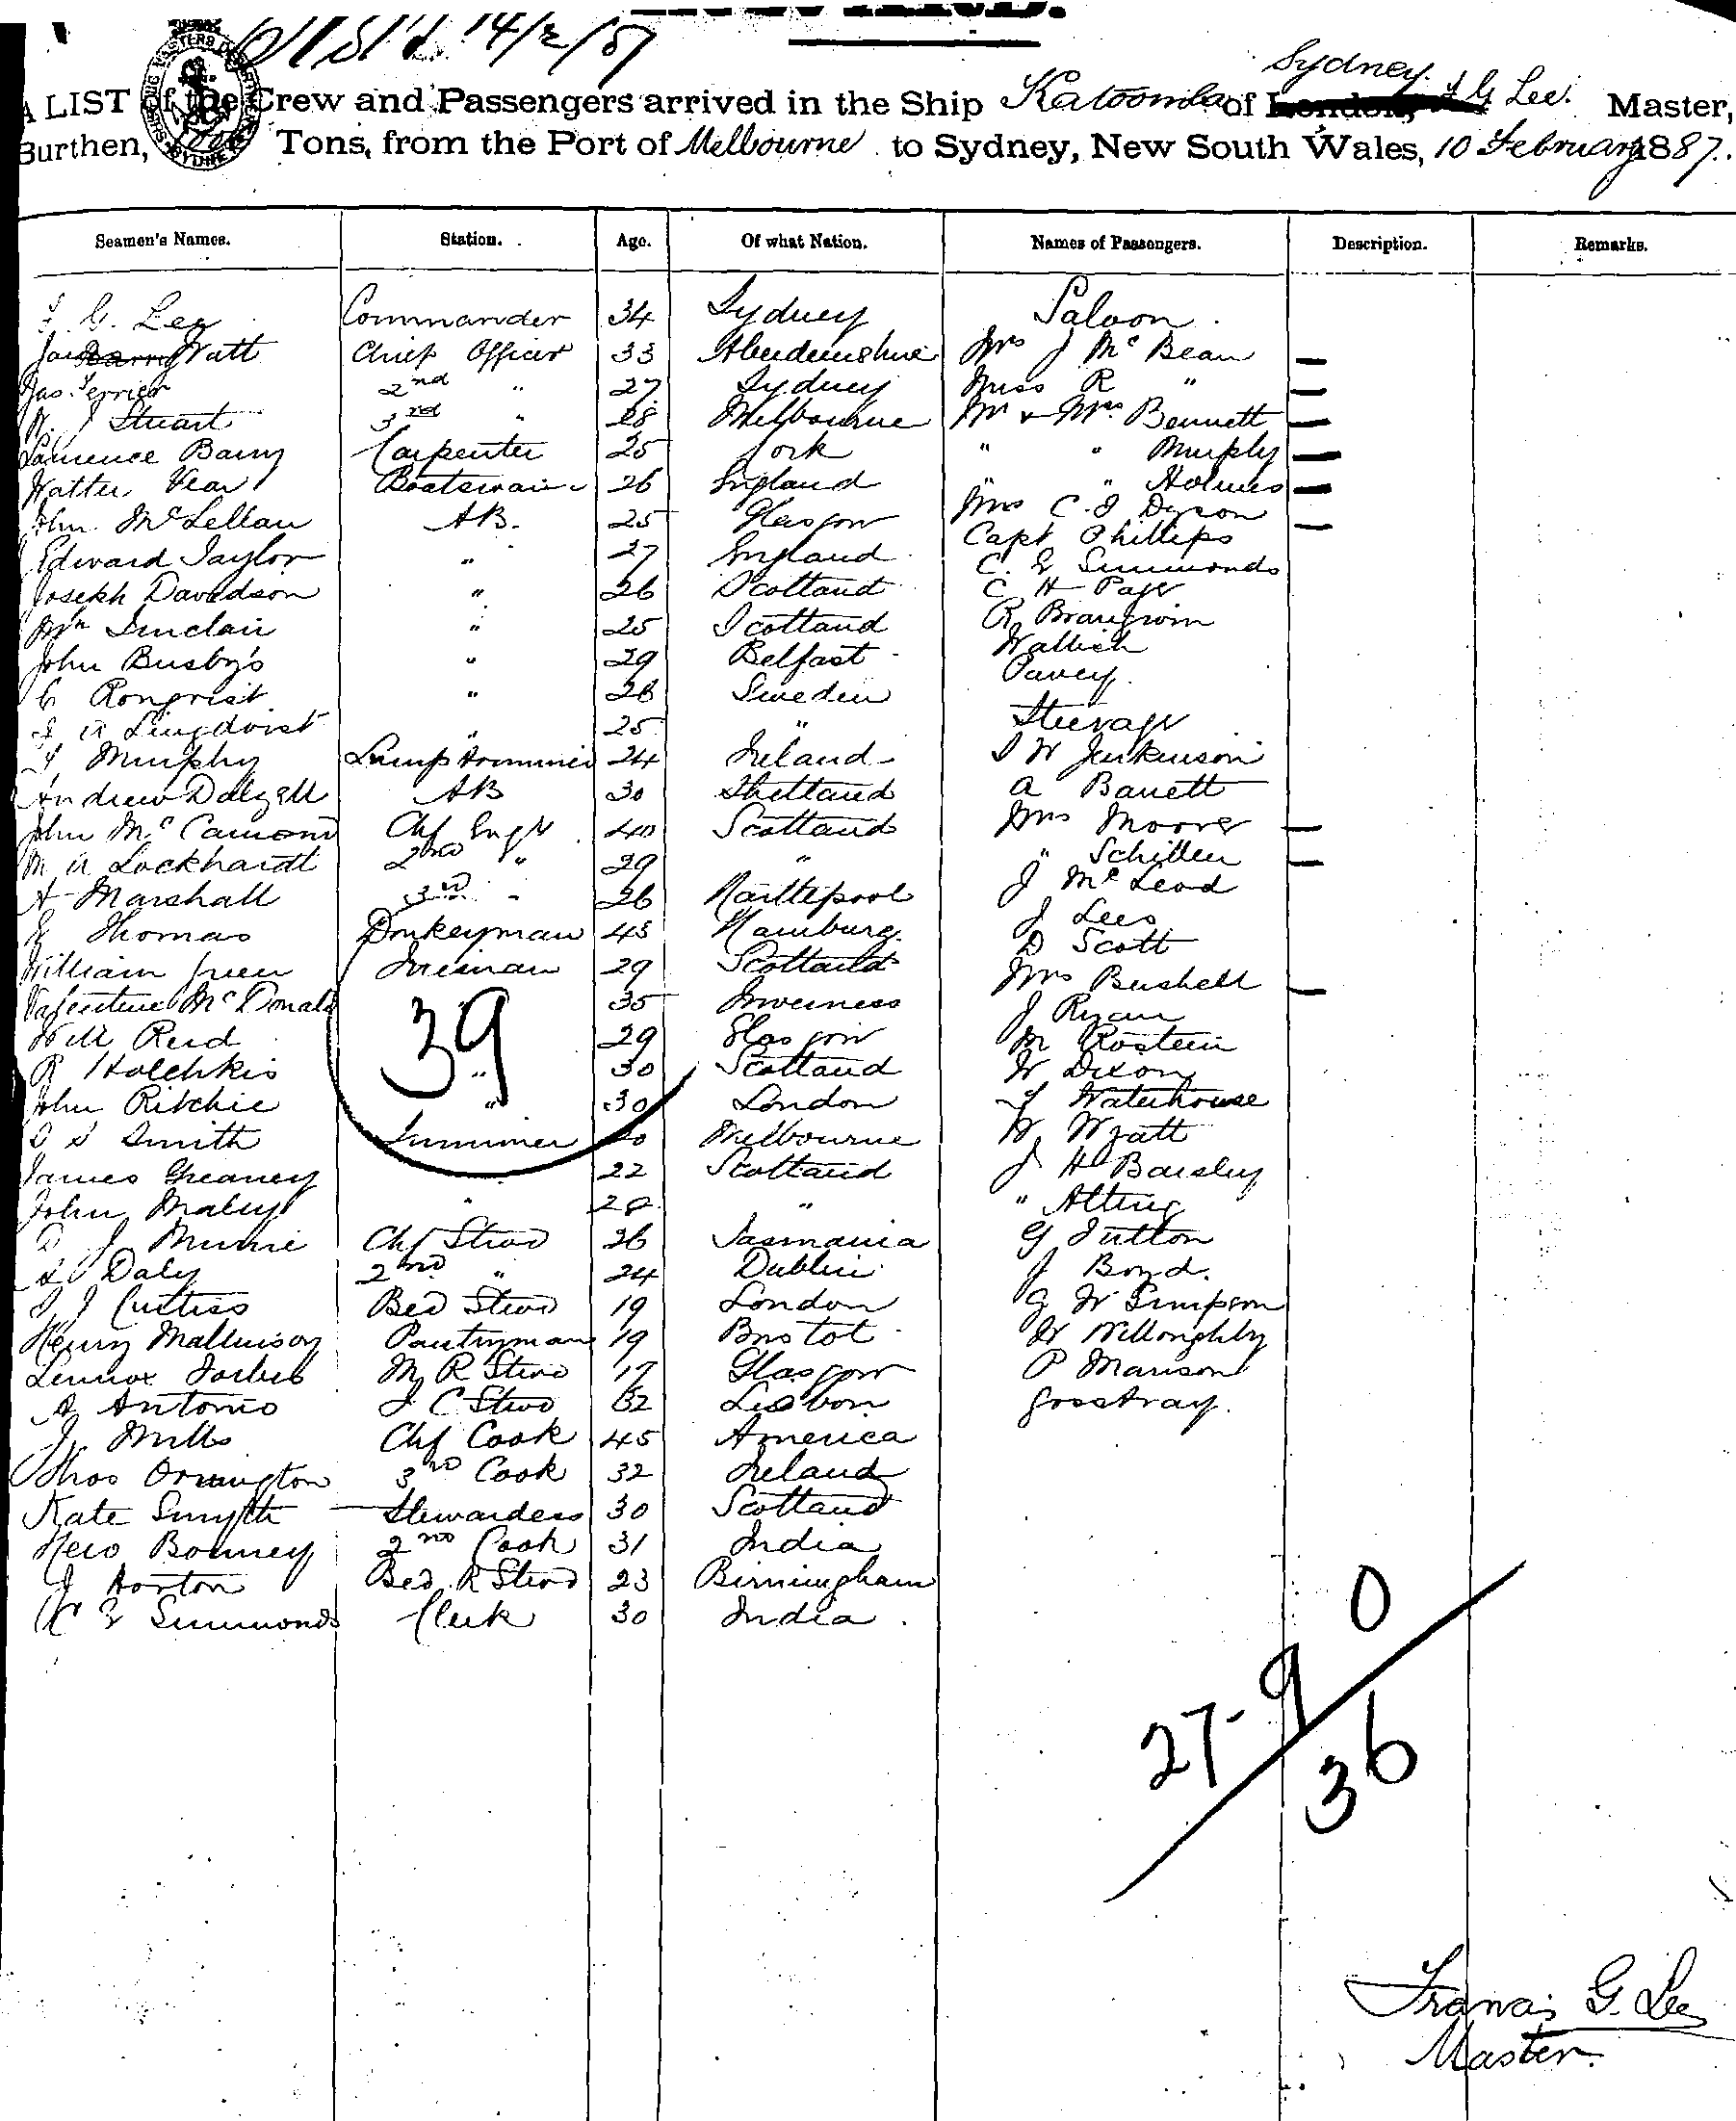 14/2/87
Sydney
A LIST of the Crew and Passengers arrived in the Ship Katoomba of London, F G Lee. Master,
Burthen, Tons, from the Port of Melbourne to Sydney, New South Wales, 10 February 1887.
Seamen's Names. Station. Age. Of what Nation. Names of Passengers. Description. Remarks.
F. G. Lee Commander 34 Sydney Saloon.
Jas Barry Watt Chief Officer 33 Aberdeenshire Mrs J McBean —
Jas. Ferrier 2nd " 27 Sydney Miss R " —
J Stuart 3rd " 28 Melbourne Mr & Mrs Bennett —
Laurence Barry Carpenter 25 Cork " " Murphy —
Walter Vear Boatswain 26 England " " Holmes —
John McLellan AB. 25 Glasgow Mrs C. J Dyson —
Edward Taylor " 27 England Capt Phillips
Joseph Davidson " 26 Scotland C. E Simmonds
Wm Sinclair " 25 Scotland C H Page
John Busby's " 29 Belfast R Brangwin
C Ronqvist " 26 Sweden Wallich
Lingdvist " 25 " Pavey.
Murphy Lamp trimmer 24 Ireland Steerage
Andrew Dalzell AB 30 Shetland J W Jenkinson
John McCamond Chf Engr 40 Scotland A Barrett
M A Lockhardt 2nd " 29 " Mrs Moore —
A Marshall 3rd " 26 Hartlepool " Schiller —
Thomas Donkeyman 45 Hamburg. J McLeod
William Green Fireman 29 Scotland J Lees
Valentine McDonald 35 Inverness D Scott
Will Reid 29 Glasgow Mrs Bushell —
R Hotchkis " 30 Scotland J Ryan
John Ritchie " 30 London M Rostein
Smith Trimmer 20 Melbourne W Dixon
James Greaney 22 Scotland Waterhouse
John Maley " " W Wyatt
D J Munie Chf Stewd 26 Tasmania J H Barsley
Daly 2nd " 24 Dublin " Alting
J Curtiss Bed Stewd 19 London G Sutton
Henry Mallinson Pantryman 19 Bristol J Boyd.
Lennox Forbes M R Stewd 17 Glasgow G W Simpson
A Antonio J C Stewd 32 Lisbon W Willoughby
J Mills Chf Cook 45 America P Manson
Thos Ormington 3rd Cook 32 Ireland Goostray.
Kate Smyth Stewardess 30 Scotland
Hero Bonney 2nd Cook 31 India
J Horton Bed R Stewd 23 Birmingham
Simmonds Clerk 30 India.
39
0
27-9
36
Francis G. Lee
Master.